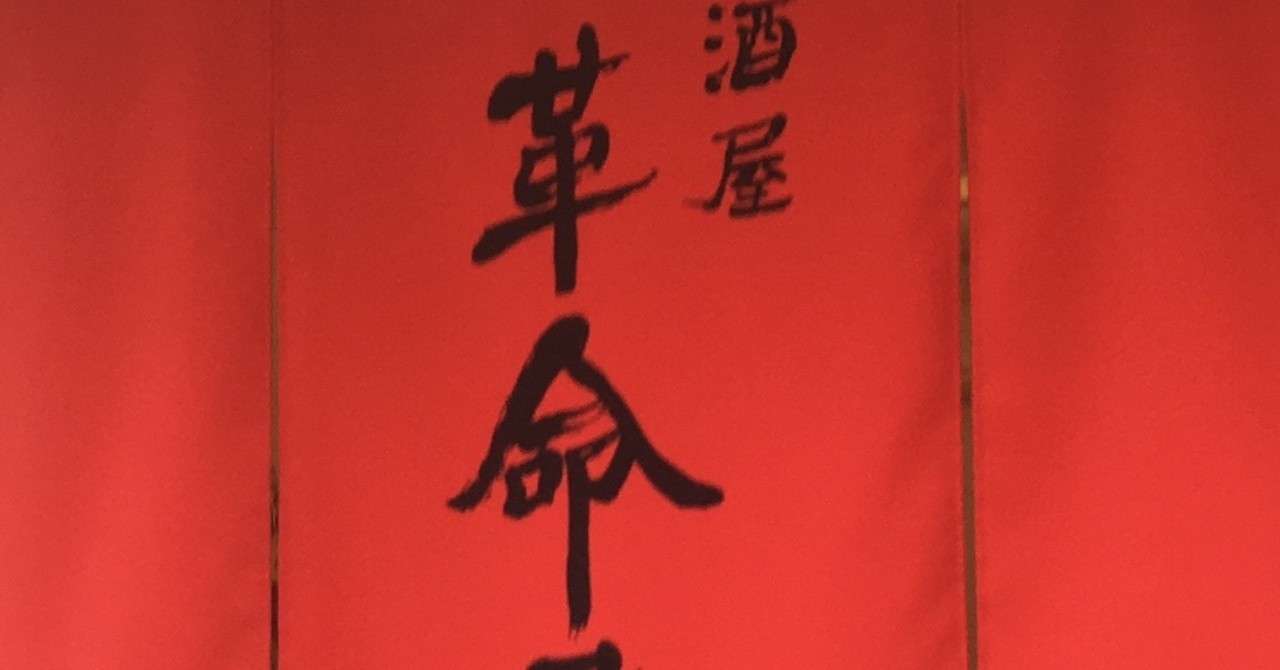 酒屋
革命